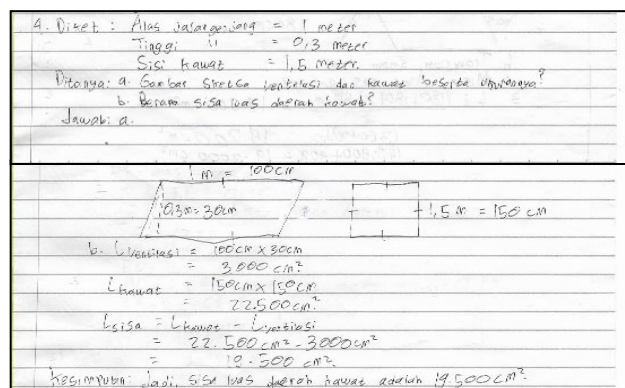 4. Diket : Alas jajargenjang = 1 meter
Tinggi " = 0,3 meter
Sisi kawat = 1,5 meter.
Ditanya: a. Gambar sketsa ventilasi dan kawat beserta ukurannya?
b. Berapa sisa luas daerah kawat?
Jawab: a.
1 m = 100cm
0,3m = 30cm
1,5 m = 150 cm
b. Lventilasi = 100cm x 30cm
= 3.000 cm²
Lkawat = 150cm x 150cm
= 22.500cm²
Lsisa = Lkawat - Lventilasi
= 22.500cm² - 3000cm²
= 19.500 cm².
Kesimpulan: Jadi, sisa luas daerah kawat adalah 19.500cm²